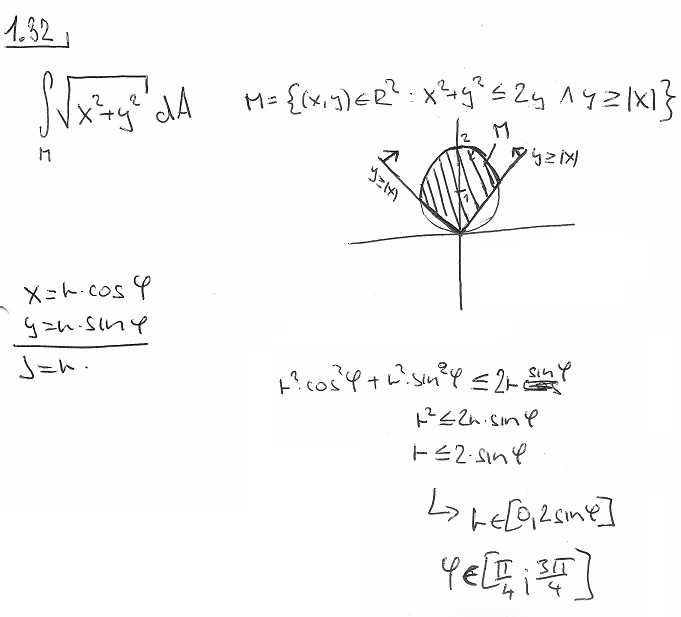 1.32
∫_M √(x²+y²) dA
M = {(x,y) ∈ R² : x²+y² ≤ 2y ∧ y ≥ |x|}
2
M
y≥|x|
y≥|x|
1
x = r·cos φ
y = r·sin φ
J = r.
r²·cos²φ + r²·sin²φ ≤ 2r sin φ
r² ≤ 2r·sin φ
r ≤ 2·sin φ
↳ r ∈ [0, 2 sin φ]
φ ∈ [π/4 ; 3π/4]